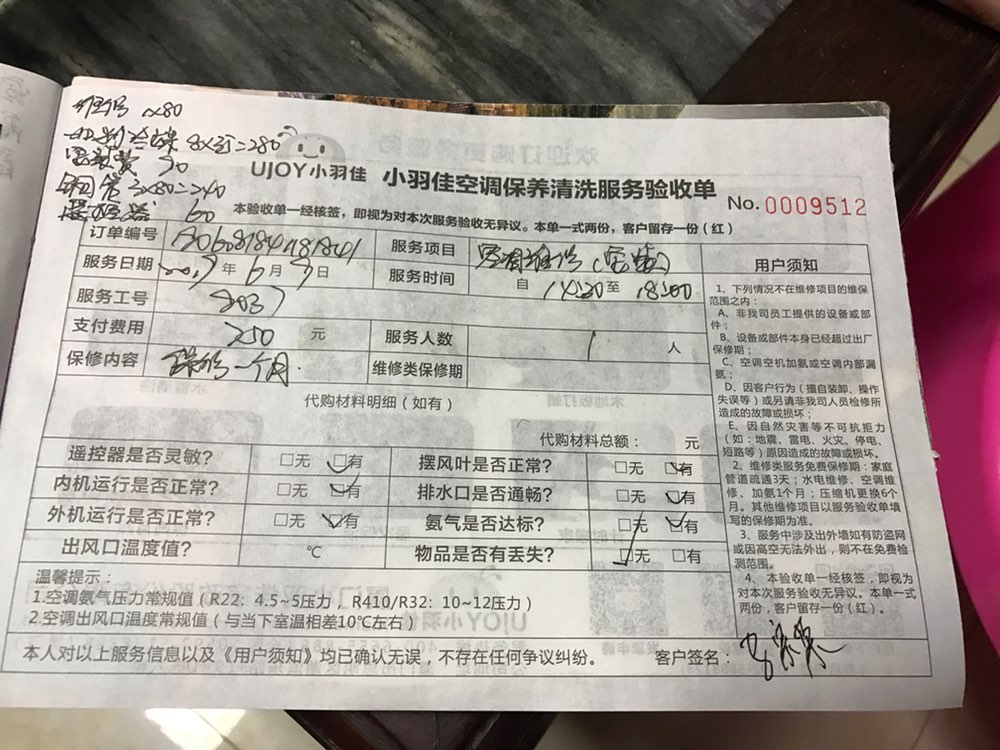 80
8x35=280
30
3x80=240
遥控器 60
UJOY小羽佳 小羽佳空调保养清洗服务验收单
No. 0009512
本验收单一经核签，即视为对本次服务验收无异议。本单一式两份，客户留存一份（红）
订单编号 服务项目 空调维修
服务日期 2019年6月9日 服务时间 自14:30至18:00
服务工号
支付费用 250 元 服务人数 1 人
保修内容 保修一个月. 维修类保修期
代购材料明细（如有）
代购材料总额： 元
遥控器是否灵敏? □无 □有 摆风叶是否正常? □无 □有
内机运行是否正常? □无 □有 排水口是否通畅? □无 □有
外机运行是否正常? □无 □有 氨气是否达标? □无 □有
出风口温度值? ℃ 物品是否有丢失? □无 □有
温馨提示：
1.空调氨气压力常规值（R22：4.5~5压力，R410/R32：10~12压力）
2.空调出风口温度常规值（与当下室温相差10℃左右）
本人对以上服务信息以及《用户须知》均已确认无误，不存在任何争议纠纷。 客户签名：
用户须知
1、下列情况不在维修项目的维保
范围之内：
A、非我司员工提供的设备或部
件；
B、设备或部件本身已经超过出厂
保修期；
C、空调空机加氨或空调内部漏
氨；
D、因客户行为（擅自装卸、操作
失误等）或另请非我司人员检修所
造成的故障或损坏；
E、因自然灾害等不可抗拒力
（如：地震、雷电、火灾、停电、
短路等）原因造成的故障或损坏。
2、维修类服务免费保修期：家庭
管道疏通3天；水电维修、空调维
修、加氨1个月；压缩机更换6个
月。其他维修项目以服务验收单填
写的保修期为准。
3、服务中涉及出外墙如有防盗网
或因高空无法外出，则不在免费检
测范围。
4、本验收单一经核签，即视为
对本次服务验收无异议。本单一式
两份，客户留存一份（红）。